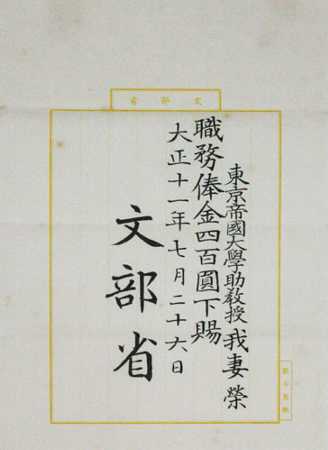 文部省
東京帝國大學助教授我妻榮
職務俸金四百圓下賜
大正十一年七月二十六日
文部省